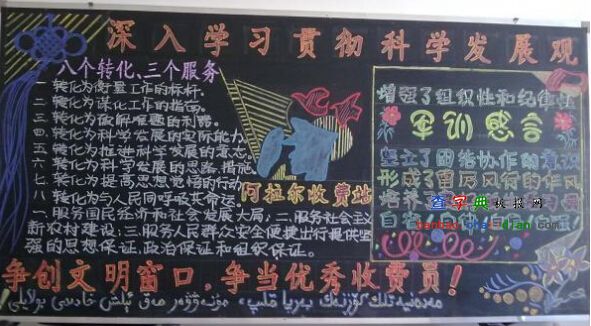 深入学习贯彻科学发展观
八个转化、三个服务
一 转化为衡量工作的标杆.
二 转化为谋化工作的指南.
三 转化为破解难题的利器.
四 转化为科学发展的实际能力
五 转化为推进科学发展的意志.
六 转化为科学发展的思路.措施
七 转化为提高思想觉悟的行动
八 转化为与人民同呼吸共命运.
一、服务国民经济和社会发展大局；二、服务社会主义
新农村建设；三、服务人民群众安全便捷出行提供坚
强的思想保证.政治保证和组织保证。
阿拉尔收费站
增强了组织性和纪律性
军训感言
坚立了团结协作的意识
形成了雷厉风行的作风
培养
查字典教报网
争创文明窗口，争当优秀收费员！